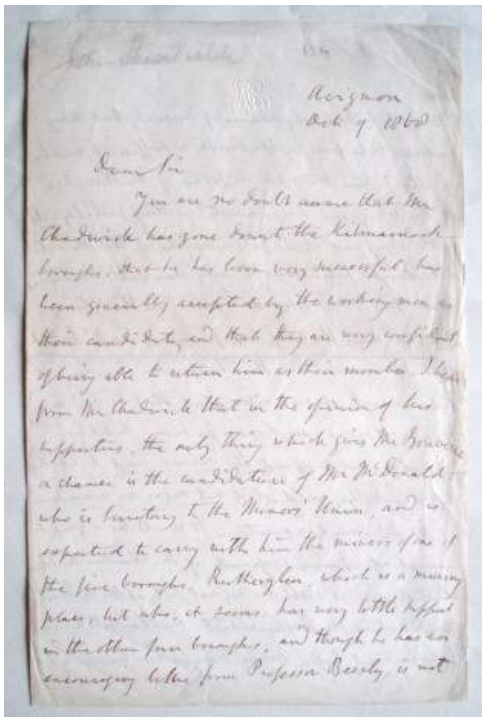 Avignon
Oct 9. 1868
Dear Sir
You are no doubt aware that Mr
Chadwick has gone down to the Kilmarnock
boroughs, that he has been very successful, has
been generally accepted by the working men as
their candidate, and that they are very confident
of being able to return him as their member. I hear
from Mr Chadwick that in the opinion of his
supporters, the only thing which gives Mr Bouverie
a chance is the candidature of Mr McDonald
who is Secretary to the Miners' Union, and is
expected to carry with him the miners of one of
the five boroughs, Rutherglen, which is a mining
place, but who, it seems, has very little support
in the other four boroughs, and though he has an
encouraging letter from Professor Beesly is not